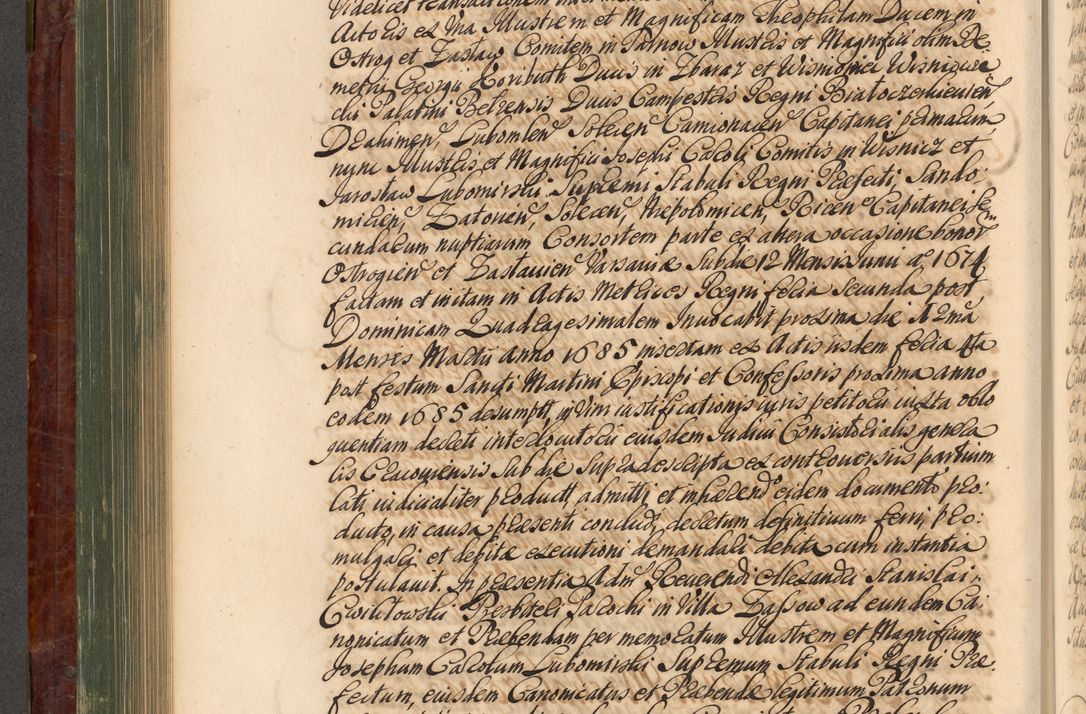 Videlicet transactionem inter
Actores ex Una Illustrem et Magnificam Theophilam Ducem in
Ostrog et Zaslaw Comitem in Tarnow Illustris et Magnifici olim De
metrii Georgii Koributh Ducis in Zbaraz et Wisniowiec Wisniowie
cki Palatini Belzensis Ducis Campestris Regni Bialocerkieuien̄
Drahimen̄, Lubomlen̄ Solecen̄ Camionacen̄ Capitanei primarum
nunc Illustris et Magnifici Josephi Caroli Comitis in Wisnicz et
Jaroslaw Lubomirski Supremi Stabuli Regni Præfecti, Sando
mirien̄, Zatorien̄, Solecen̄, Niepolomicen̄, Ricen̄ Capitanei se
cundarum nuptiarum Consortem parte ex altera occasione bonor̄
Ostrogien̄ et Zaslauien̄ Varsaviæ Sub die 12 Mensis Junii aº 1674
factam et initam in Actis Metrices Regni feria Secunda post
Dominicam Quadragesimalem Invocavit proxima die 12ma
Mensis Martii Anno 1685 insertam ex Actis iisdem feria 4ta
post festum Sancti Martini Episcopi et Confessoris proxima anno
eodem 1685 desumptt, in Vim iustificationis iuris petitorii iuxta oblo
quentiam decreti interlocutorii eiusdem Judicii Consistorialis genera
lis Cracoviensis Sub die Supradescripta ex controversiis partium
lati, iudicialiter productt, admitti, et inhærend̄o eidem documento pro
ducto, in causa præsenti concludi, decretum definitivum ferri, pro:
mulgari et debitæ executioni demandari debita cum instantia
postulauit. In præsentia Adm̄ Reverendi Alexandri Stanislai
Cwilitowski Presbiteri Parochi in Villa Zassow ad eundem Ca
nonicatum et Præbendam per memoratum Illustrem et Magnificum
Josephum Carolum Lubomirski Supremum Stabuli Regni Præ
fectum, eiusdem Canonicatus et Præbendæ legitimum Patronum